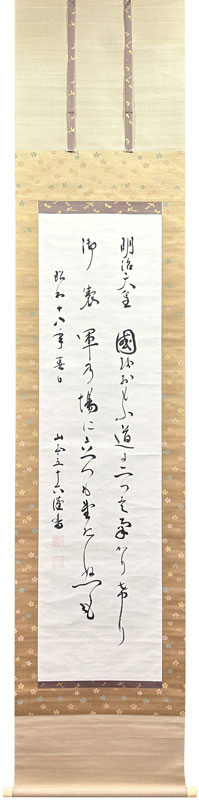 明治天皇 國をおもふ道に二つはなかりけり
御製 軍乃場に立つも堂たぬも
昭和十八年春日
山本五十六謹書